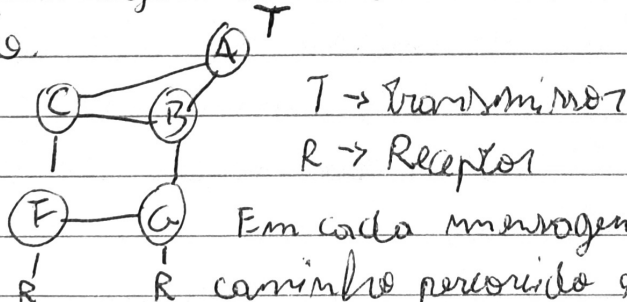 T
A
C
B
T → transmissor
R → Receptor
F
G
Em cada mensagem
R
R
caminho percorrido